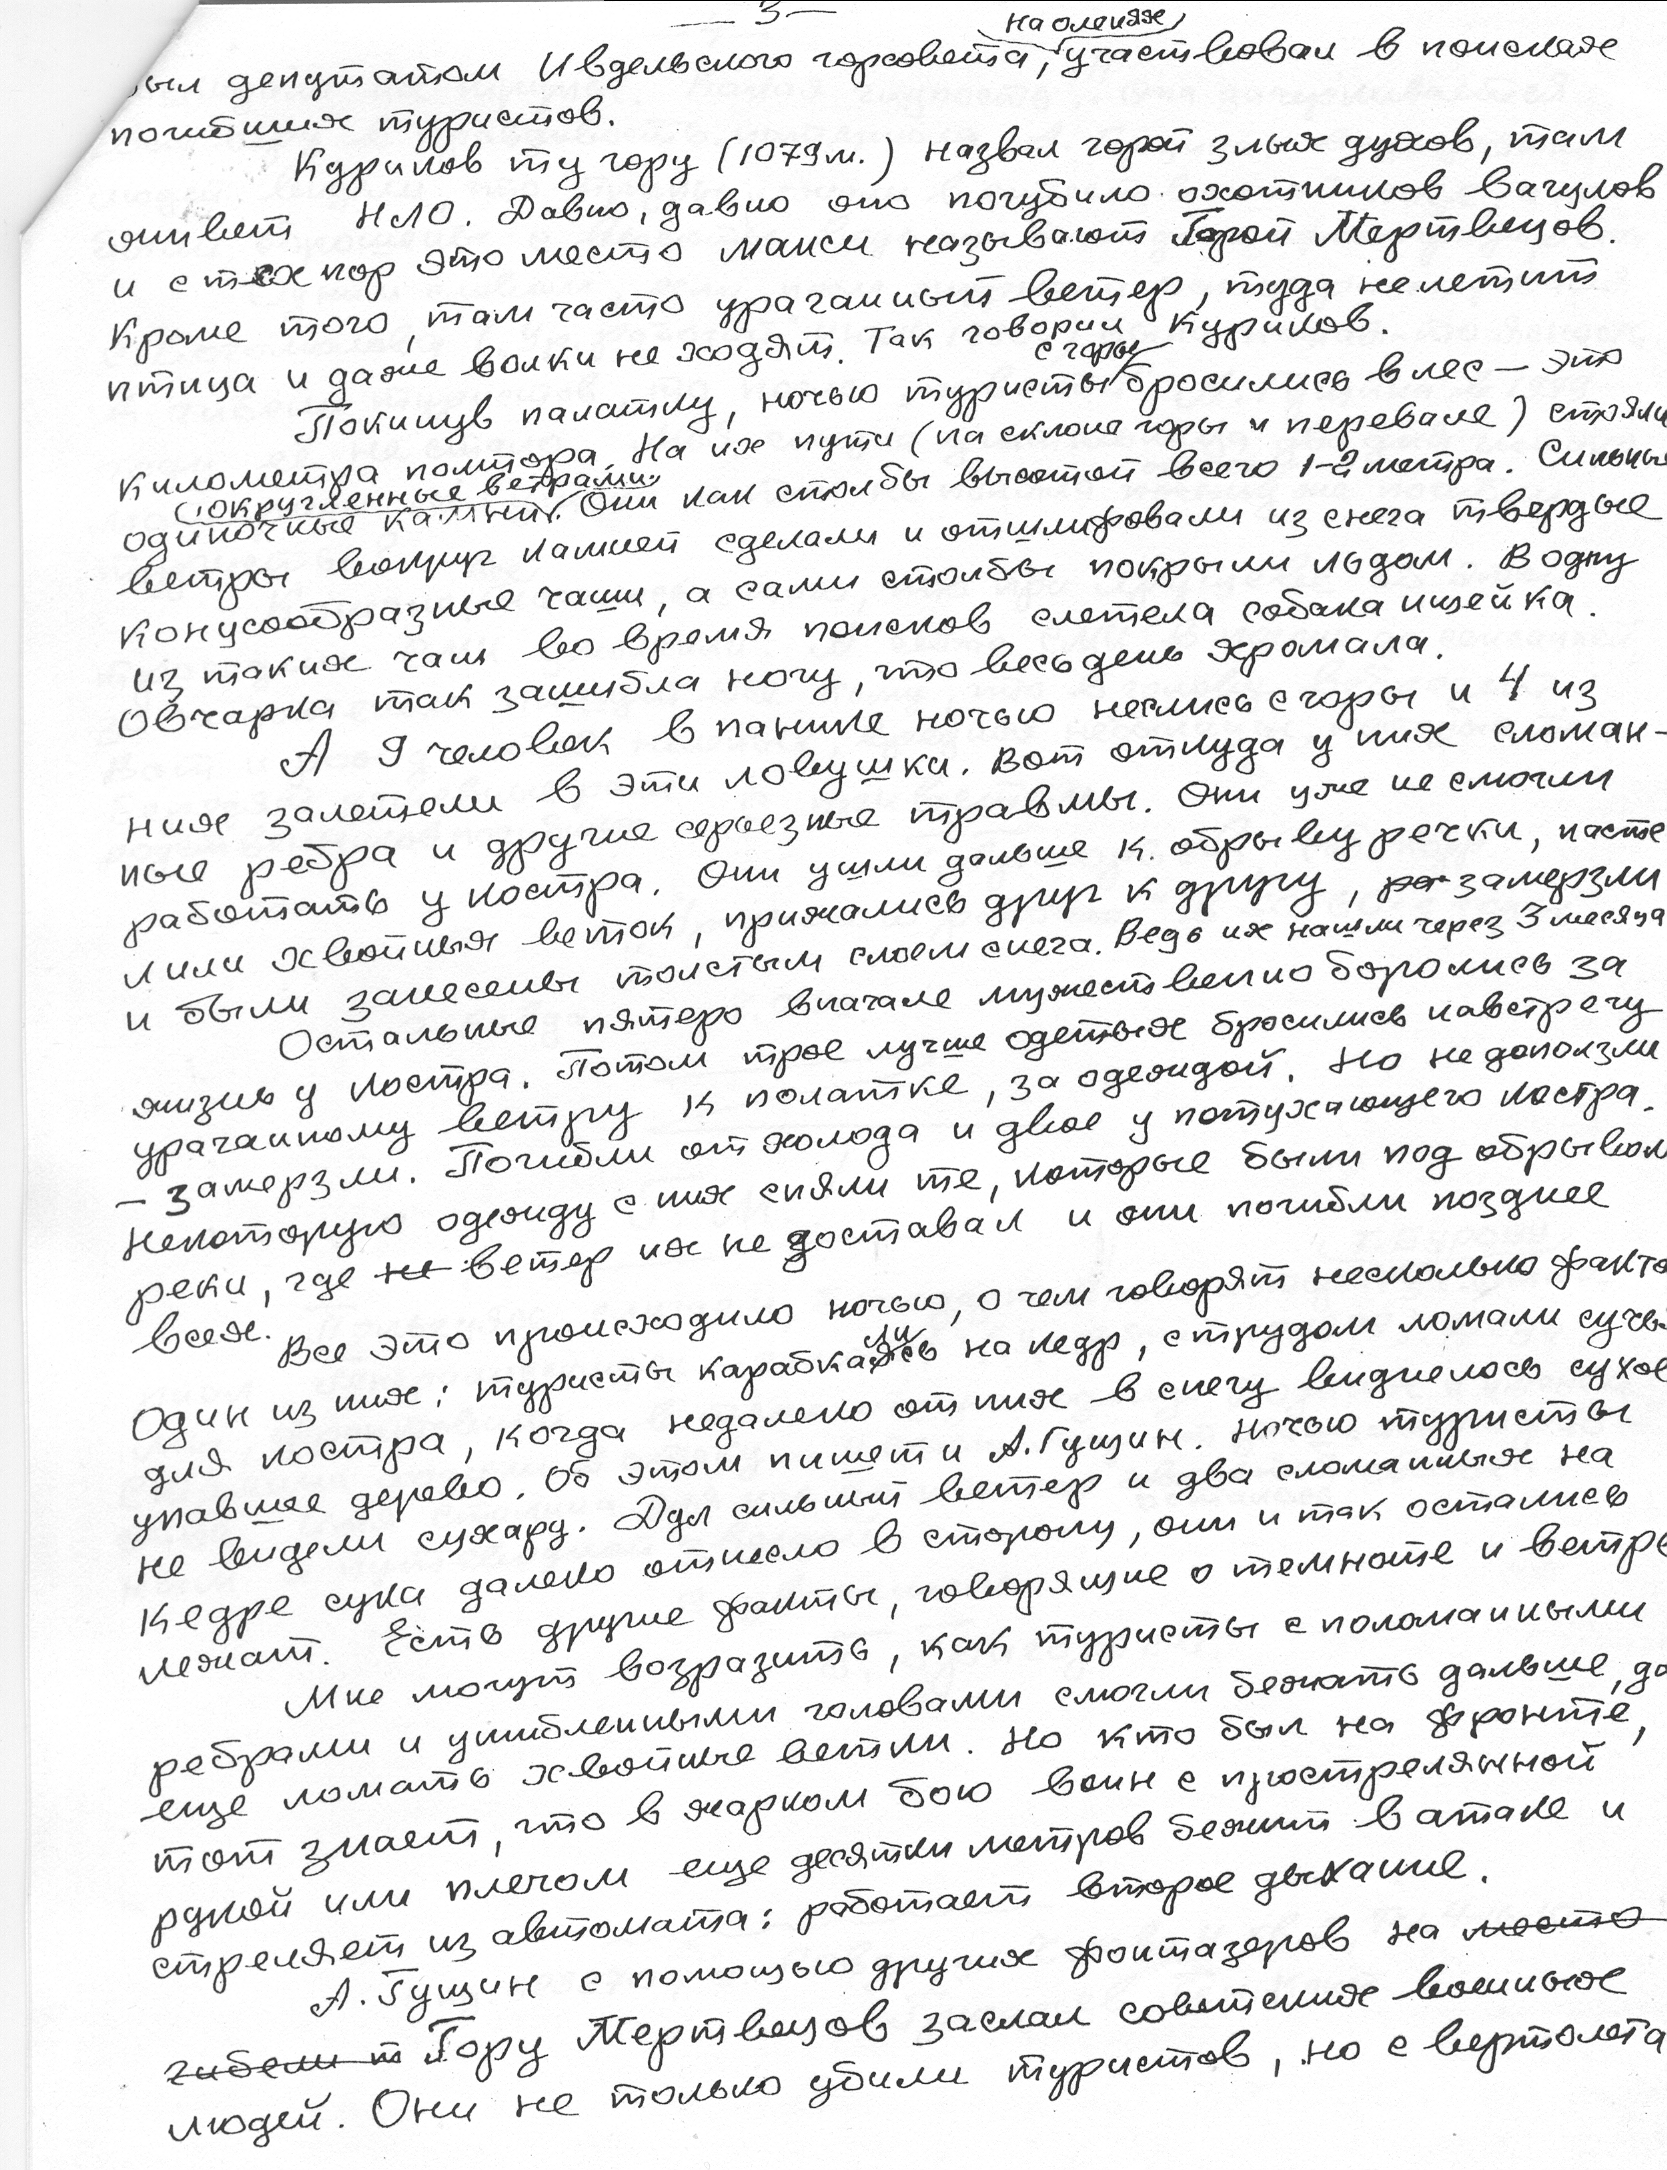 — 3 —
на оленях
был депутатом Ивдельского горсовета, участвовал в поисках
погибших туристов.
Куриков ту гору (1079 м.) назвал горой злых духов, там
живет НЛО. Давно, давно оно погубило охотников вагулов
и с тех пор это место манси называют Горой Мертвецов.
Кроме того, там часто ураганный ветер, туда не летит
птица и даже волки не ходят. Так говорил Куриков.
с горы
Покинув палатку, ночью туристы бросились в лес — это
километра полтора. На их пути (на склоне горы и перевале) стояли
округленные ветрами
одиночные камни. Они как столбы высотой всего 1-2 метра. Сильные
ветры вокруг камней сделали и отшлифовали из снега твердые
конусообразные чаши, а сами столбы покрыли льдом. В одну
из таких чаш во время поисков слетела собака ищейка.
Овчарка так зашибла ногу, что весь день хромала.
А 9 человек в панике ночью неслись с горы и 4 из
них залетели в эти ловушки. Вот откуда у них сломан-
ные ребра и другие серьезные травмы. Они уже не смогли
работать у костра. Они ушли дальше к обрыву речки, насте
лили хвойных веток, прижались друг к другу, замерзли
и были занесены толстым слоем снега. Ведь их нашли через 3 месяца
Остальные пятеро вначале мужественно боролись за
жизнь у костра. Потом трое лучше одетых бросились навстречу
ураганному ветру к полатке, за одеждой. Но не доползли
— замерзли. Погибли от холода и двое у потухающего костра.
Некоторую одежду с них сняли те, которые были под обрывом
реки, где не ветер их не доставал и они погибли позднее
всех.
Все это происходило ночью, о чем говорят несколько факто
Один из них: туристы карабкались на кедр, с трудом ломали сучья
для костра, когда недалеко от них в снегу виднелось сухое
упавшее дерево. Об этом пишет и А. Гущин. Ночью туристы
не видели сухару. Дул сильный ветер и два сломанных на
кедре сука далеко отнесло в сторону, они и так остались
лежат. Есть другие факты, говорящие о темноте и ветре
Мне могут возразить, как туристы с поломанными
ребрами и ушибленными головами смогли бежать дальше, да
еще ломать хвойные ветки. Но кто был на фронте,
тот знает, что в жарком бою воин с простреляжной
рукой или плечом еще десятки метров бежит в атаке и
стреляет из автомата: работает второе дыхание.
А. Гущин с помощью других фонтазеров на место
гибели т Гору Мертвецов заслал советских военных
людей. Они не только убили туристов, но с вертолета